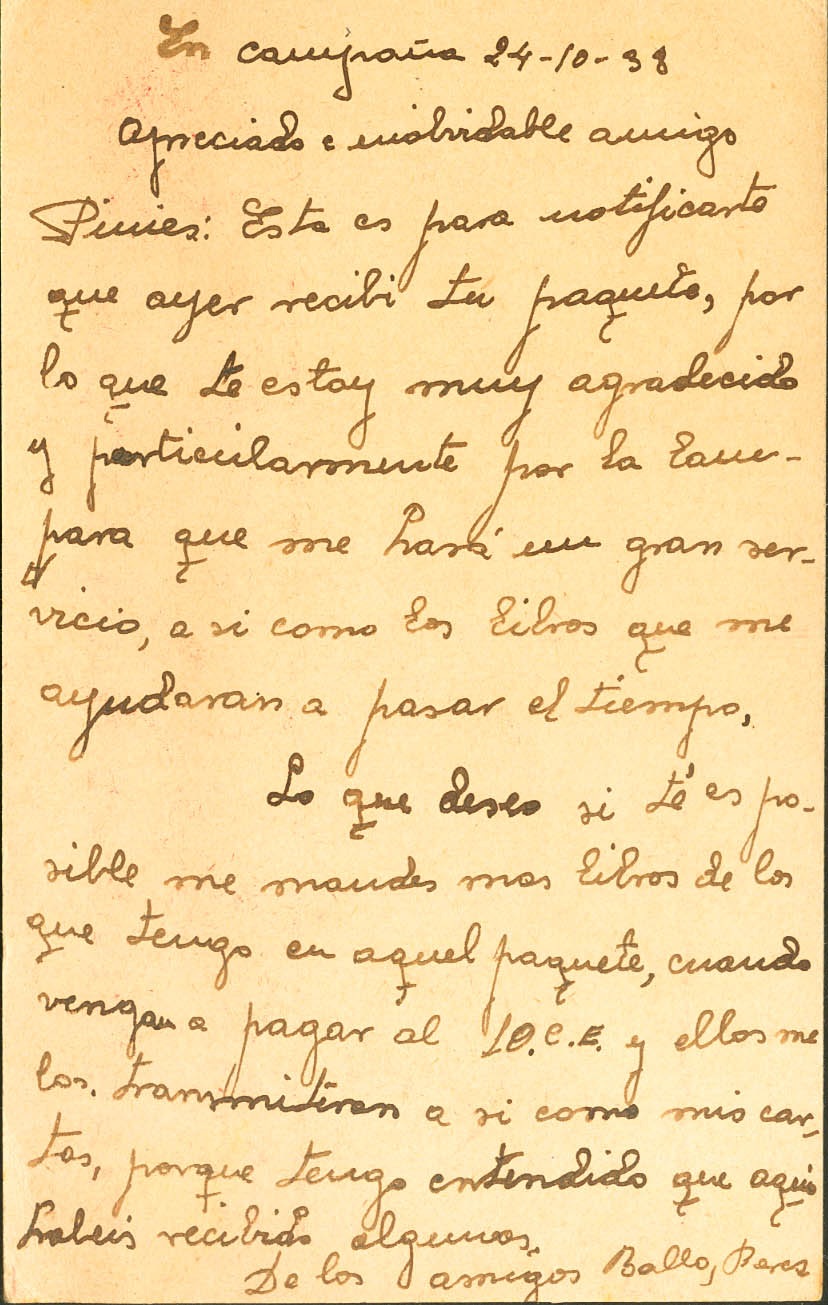 En campaña 24-10-38
Apreciado e inolvidable amigo
Pinies: Esta es para notificarte
que ayer recibi tu paquete, por
lo que te estoy muy agradecido
y particularmente por la lam-
para que me hará un gran ser-
vicio, a si como los libros que me
ayudaran a pasar el tiempo,
Lo que deseo si té es po-
sible me mandes mas libros de los
que tengo en aquel paquete, cuando
vengan a pagar al y ellos me
los. transmitiran a si como mis car-
tas, porque tengo entendido que aqui
habeis recibido algunas,
De los amigos Ballo, Perez